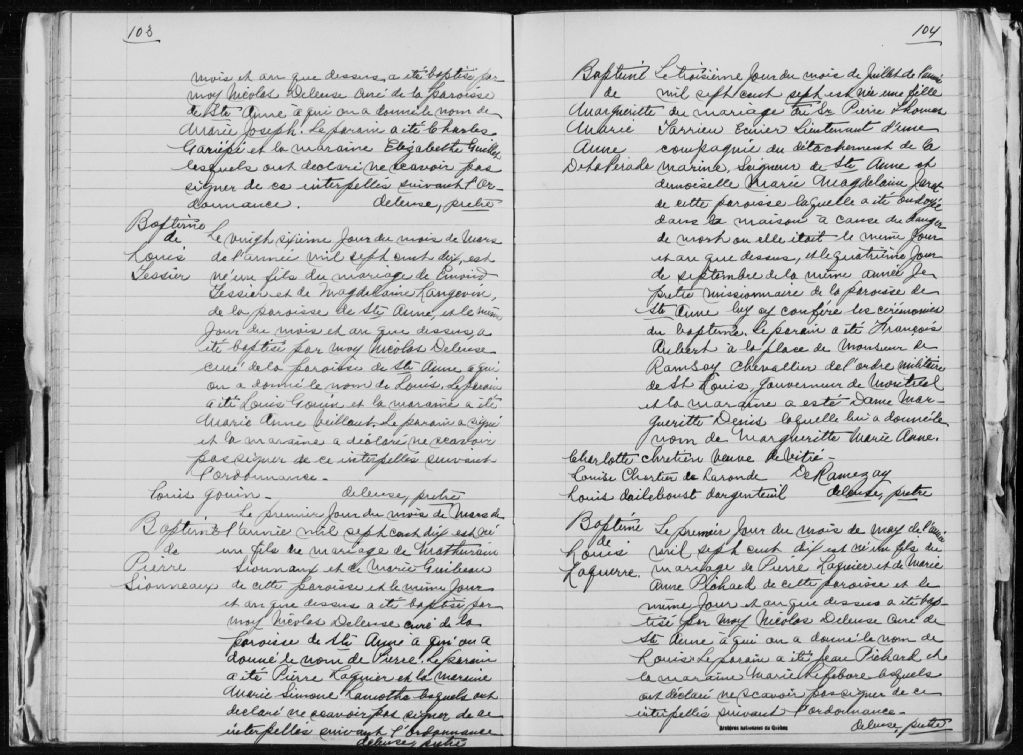 103
mois et an que dessus, a été baptisé par
moy Nicolas Deleuse curé de la paroisse
de Ste Anne à qui on a donné le nom de
Marie Joseph. Le parain a été Charles
Gariépi et la maraine Elizabethe Guillet
lesquels ont déclaré ne scavoir pas
signer de ce interpellés suivant l'or-
donnance. deleuse, pretre
Baptême
de
Louis
Tessier
Le vingt sixième Jour du mois de Mars
de l'année mil sept cent dix, est
né un fils du mariage de
Tessier et de Magdelaine Rangevin,
de la paroisse de Ste Anne, et le même
Jour du mois et an que dessus, a
été baptisé par moy Nicolas Deleuse
curé de la paroisse de Ste Anne a qui
on a donné le nom de Louis. Le parain
a été Louis Gouin et la maraine a été
Marie Anne Veillaut. Le parain a signé
et la maraine a déclaré ne scavoir
pas signer de ce interpellés suivant
l'ordonnance.-
Louis gouin - deleuse, pretre
Baptême
de
Pierre
Lionneaux
Le premier Jour du mois de Mars de
l'année mil sept cent dix est né
un fils de mariage de Mathurain
Lionnaux et de Marie Guileau
de cette paroisse et le même Jour
et an que dessus a été baptisé par
moy Nicolas Deleuse curé de la
paroisse de Ste Anne à qui on a
donné le nom de Pierre. Le parain
a été Pierre Lagnier et la maraine
Marie Simone Lamothe lesquels ont
déclaré ne scavoir pas signer de ce
interpellés suivant l'ordonnance
deleuse, pretre
104
Baptême
de
Margueritte
Marie
Anne
De la Pérade
Le troisième Jour du mois de Juillet de l'année
mil sept cent sept est née une fille
du mariage du Sr Pierre Thomas
Tarrieu Ecuier Lieutenant d'une
compagnie du détachement de la
marine, Seigneur de Ste Anne et
demoiselle Marie Magdelaine Jarret
de cette paroisse laquelle a été Endoyé
dans la maison à cause du danger
de mort ou elle était le même Jour
et an que dessus, et le quatrième Jour
de septembre de la même année Je
pretre missionnaire de la paroisse de
Ste Anne luy ay conféré les cérémonies
du baptême. Le parain a été François
Aubert à la place de Monsieur de
Ramsay Chevallier de l'ordre militaire
de St Louis, Gouverneur de Montréal
et la maraine a esté Dame Mar-
gueritte Denis laquelle lui a donné le
nom de Margueritte Marie Anne.
Charlotte Chretien Veuve de Vitré-
Louise Chartier de Laronde De Ramezay
Louis dailleboust dargenteuil deleuse, pretre
Baptême
de
Louis
Laquerre.
Le premier Jour du mois de may de l'année
mil sept cent dix est né un fils du
mariage de Pierre Laquier et de Marie
Anne Pichard de cette paroisse et le
même Jour et an que dessus a été bap-
tisé par moy Nicolas Deleuse curé de
Ste Anne à qui on a donné le nom de
Louis. Le parain a été Jean Pichard et
la maraine Marie Lefebvre lesquels
ont déclaré ne scavoir pas signer de ce
interpellés suivant l'ordonnance-
deleuse, pretre
Archives nationales du Québec